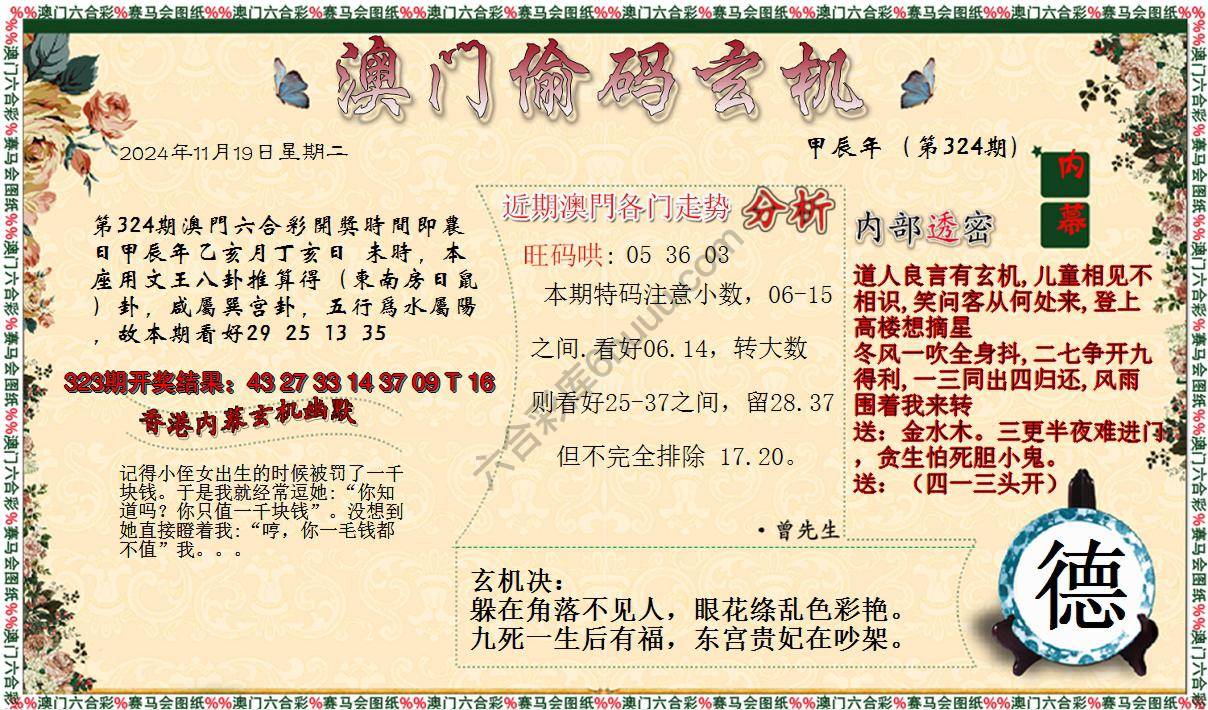 %%澳门六合彩%赛马会图纸%%澳门六合彩%赛马会图纸%%澳门六合彩%赛马会图纸%%澳门六合彩%赛马会图纸%%澳门六合彩%赛马会图纸%%澳门六合彩%赛马会图纸%%澳门六合彩%赛马会图纸
澳门偷码玄机
2024年11月19日星期二
甲辰年（第324期）
第324期澳門六合彩開獎時間即農
日甲辰年乙亥月丁亥日 未時，本
座用文王八卦推算得（東南房日鼠
）卦，咸屬巽宫卦，五行爲水屬陽
，故本期看好29 25 13 35
323期开奖结果：43 27 33 14 37 09 T 16
香港内幕玄机幽默
记得小侄女出生的时候被罚了一千
块钱。于是我就经常逗她:“你知
道吗？你只值一千块钱”。没想到
她直接瞪着我:“哼，你一毛钱都
不值”我。。。
近期澳門各门走势 分析
旺码哄: 05 36 03
本期特码注意小数，06-15
之间.看好06.14，转大数
则看好25-37之间，留28.37
但不完全排除 17.20。
·曾先生
内幕
内部透密
道人良言有玄机,儿童相见不
相识,笑问客从何处来,登上
高楼想摘星
冬风一吹全身抖,二七争开九
得利,一三同出四归还,风雨
围着我来转
送：金水木。三更半夜难进门
，贪生怕死胆小鬼。
送：（四一三头开）
玄机决：
躲在角落不见人，眼花绦乱色彩艳。
九死一生后有福，东宫贵妃在吵架。
德